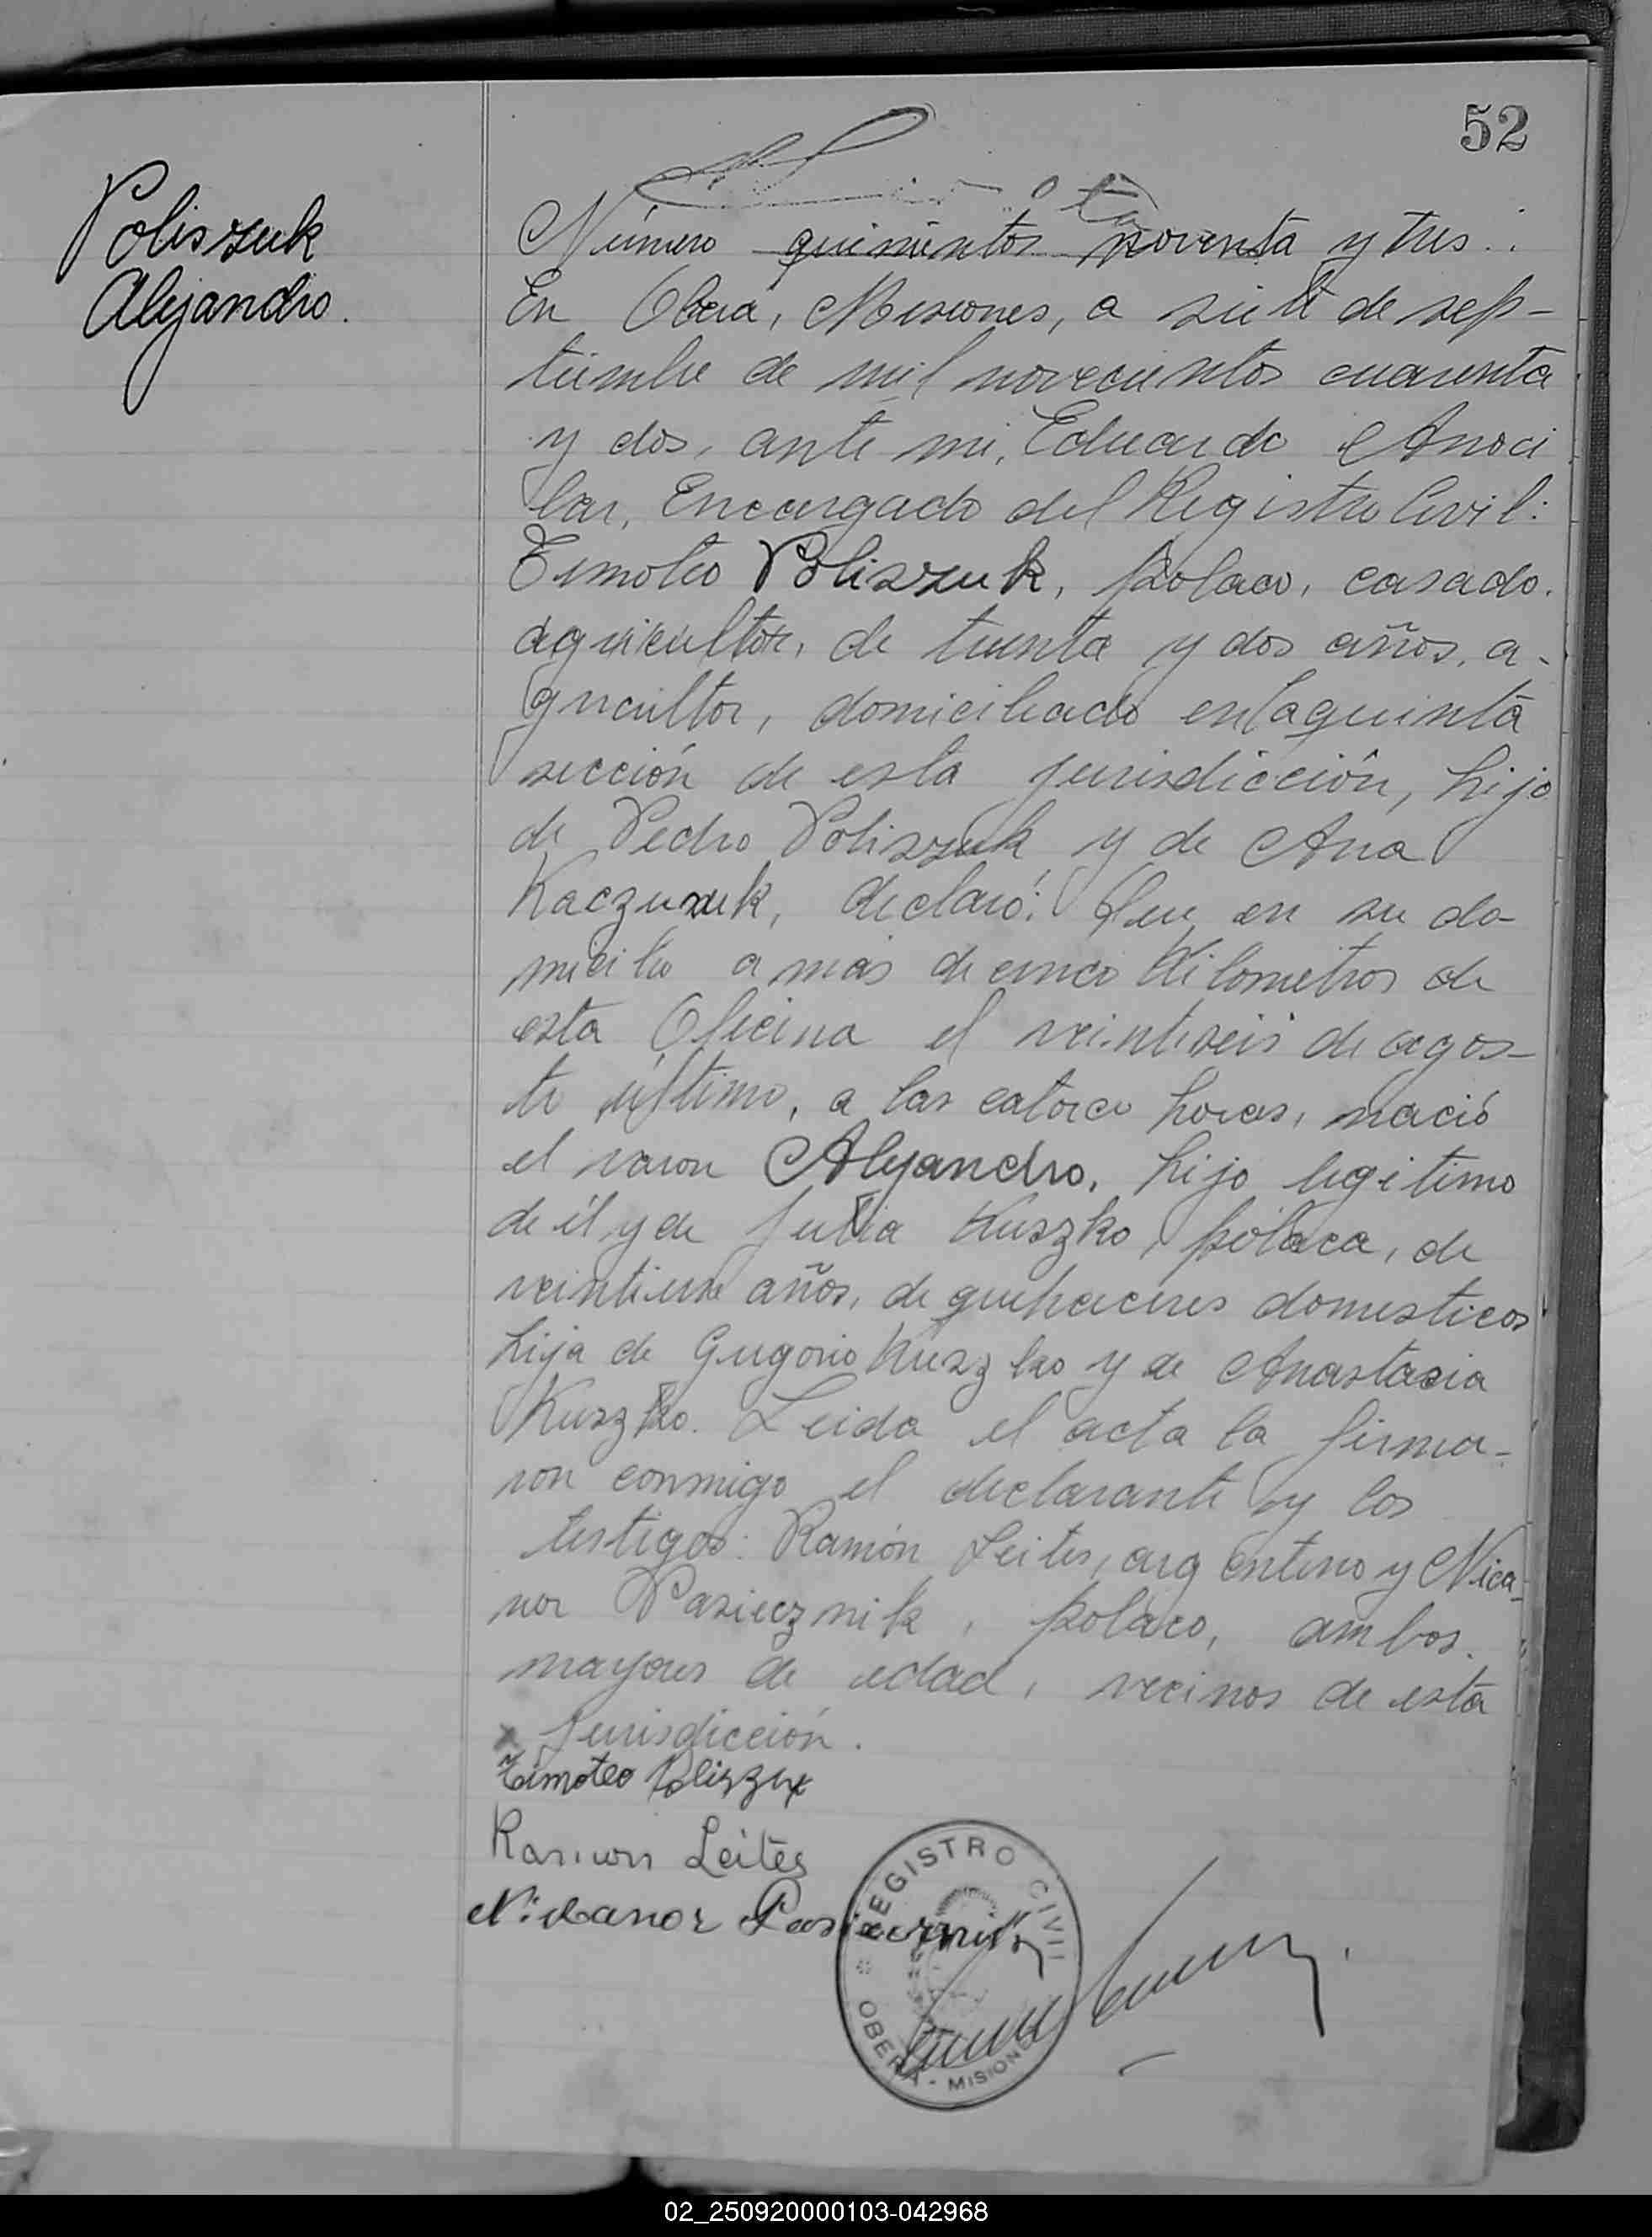 52
Poliszuk
Alejandro.
Número quinientos noventa y tres.
En Oberá, Misiones, a siete de sep-
tiembre de mil novecientos cuarenta
y dos, ante mi, Eduardo
Encargado del Registro Civil:
Timoteo Poliszuk, polaco, casado,
agricultor, de treinta y dos años, a-
gricultor, domiciliado en la quinta
sección de esta jurisdicción, hijo
de Pedro Poliszuk y de Ana
declaró: Que en su do-
micilio a mas de cinco kilometros de
esta Oficina el veintiseis de agos-
to último, a las catorce horas, nació
el varon Alejandro, hijo legitimo
de él y de Julia Kuszko, polaca, de
años, de quehaceres domesticos
hija de Gregorio Kuszko y de Anastasia
Kuszko. Leida el acta la firma-
ron conmigo el declarante y los
testigos: Ramón Leites, argentino y Nica-
nor Pasiecznik, polaco, ambos
mayores de edad, vecinos de esta
jurisdicción.
Timoteo Poliszuk
Ramon Leites
Nicanor
REGISTRO CIVIL
OBERA - MISIONES
02_250920000103-042968